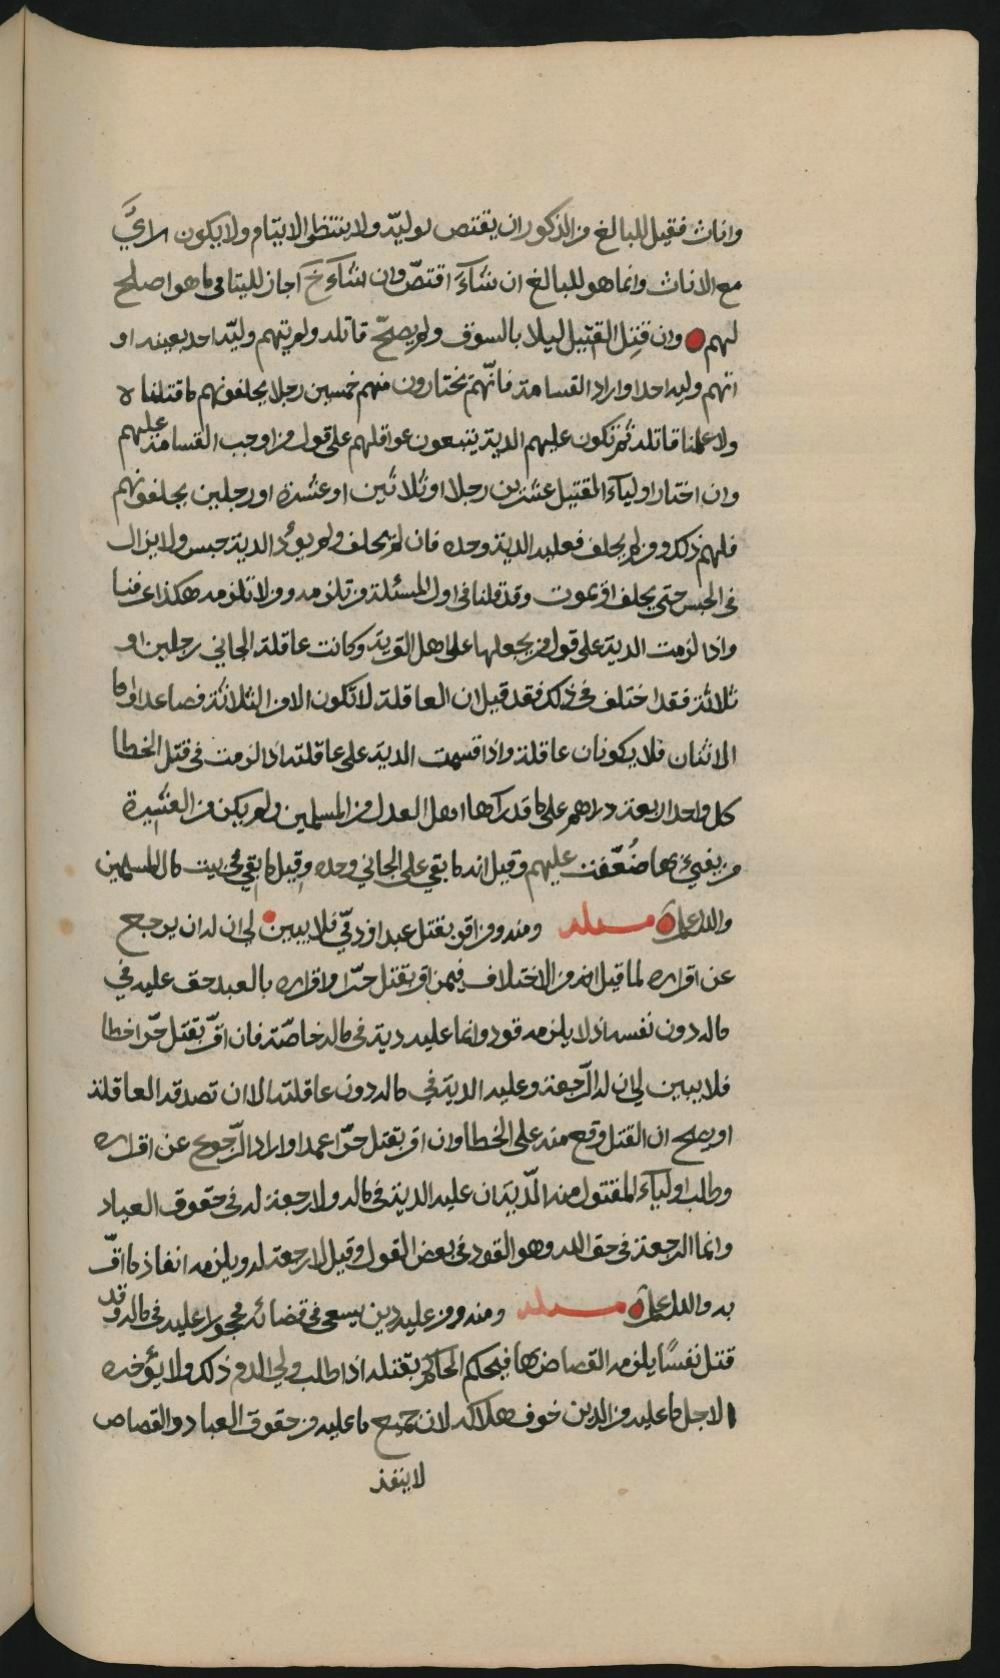 واناث فقيل للبالغ من الذكور ان يقتص لوليّه ولا ينتظر الايتام ولا يكون رايٌ
مع الاناث وانما هو للبالغ ان شآءَ اقتصّ وان شآءَ اجاز لليتامى ما هو اصلح
لهم وان قُتِل القتيل ليلا بالسوق ولم يصحّ قاتله ولم يتهم وليّه احد بعينه او
اتهم وليه احدا واراد القسامة فانّهم يختارون منهم خمسين رجلا يحلفونهم ما قتلناه
ولا علمنا قاتله ثم تكون عليهم الدية يتبعون عواقلهم على قول من اوجب القسامة عليهم
وان اختار اوليآء القتيل عشرين رجلا او ثلاثين او عشرة او رجلين يحلفونهم
فلهم ذلك ومن لم يحلف فعليه الدية وحده فان لم يحلف ولم يؤد الدية حبس ولا يزال
فى الحبس حتى يحلف او يموت وقد قلنا فى اول المسئلة من تلزمه ومن لا تلزمه هكذا عرفنا
واذا لزمت الدية على قول من يجعلها على اهل القرية وكانت عاقلة الجاني رجلين او
ثلاثة فقد اختلف فى ذلك فقد قيل ان العاقلة لا تكون الا من الثلاثة فصاعدا واما
الاثنان فلا يكونان عاقلة واذا قسمت الدية على عاقلته اذا لزمت فى قتل الخطا
كل واحد اربعة دراهم على ما قد رآها اهل العدل من المسلمين ولم يكن من العشيرة
من يفيئ بها ضُعّفت عليهم وقيل انه ما بقي على الجاني وحده وقيل ما بقي فى بيت مال المسلمين
والله اعلم مسئلة ومنه ومن اقر بقتل عبد او ذمّي فلا يبين لي ان له ان يرجع
عن اقراره لما قيل انه من الاختلاف فيمن اقر بقتل حرّ او اقراره بالعبد حق عليه في
ماله دون نفسه اذ لا يلزمه قود وانما عليه دية فى ماله خاصّة فان اقرّ بقتل حرّ اخطا
فلا يبين لي ان له الرّجعة وعليه الدية في ماله دون عاقلته الا ان تصدقه العاقلة
او يصح ان القتل وقع منه على الخطا وان اقر بقتل حرّ اعمدا واراد الرّجوع عن اقراره
وطلب اوليآء المقتول منه الدّية ان عليه الدية فى ماله ولا رجعة له فى حقوق العباد
وانما الرجعة فى حق الله وهو القود فى بعض القول وقيل لا رجعة له ويلزمه انفاذ ما اقّر
به والله اعلم مسئلة ومنه ومن عليه دين يسعى فى قضائه محجورا عليه فى ماله وقد
قتل نفسًا يلزمه القصاص بها فيحكم الحاكم بقتله اذا طلب ولي الدم ذلك ولا يؤخره
لاجل ما عليه من الدين خوف هلاكه لان جميع ما عليه من حقوق العباد والقصاص
لا ينفذ